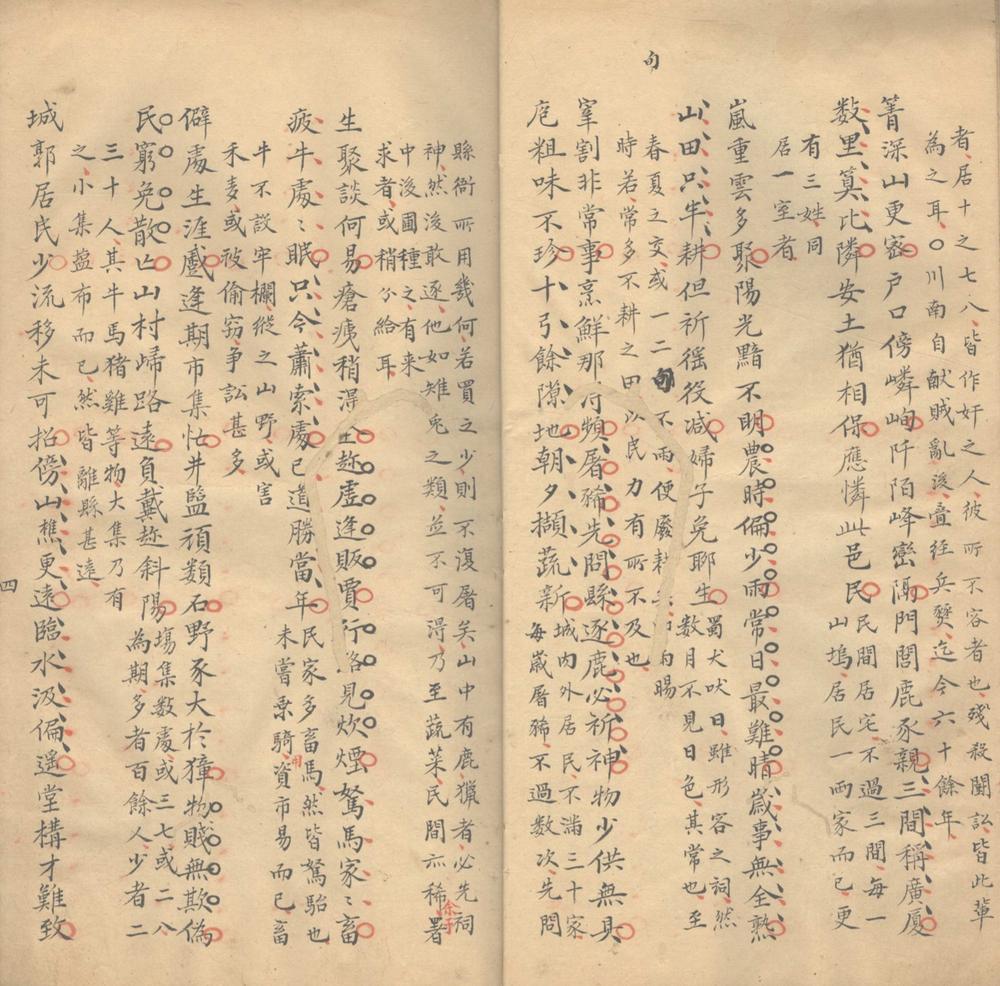 句
者、居十之七八、皆作奸之人、彼所不容者也、残殺闘訟、皆此輩
為之耳、〇川南自献賊亂後、疊經兵燹、迄今六十餘年、
箐深山更宻戸口傍嶙峋阡陌峰巒隔門閭鹿豕親三間稱廣廈
数里算比隣安土猶相保應憐此邑民民間居宅、不過三間、每一山塢、居民一两家而已、更
有三姓、同
居一室者
嵐重雲多聚陽光黯不明農時偏少雨常日最難晴嵗事無全熟
山田只半耕但祈徭役减婦子免聊生蜀犬吠日、雖形容之詞、然数月不見日色、其常也、至
春夏之交、或一二句不雨、便廢耕
時若、常多不耕之田、以民力有所不及也、
宰割非常事烹鮮那得頻屠豨先問縣逐鹿必祈神物少供無具
庖粗味不珍十弓餘隙地朝夕擷蔬新城内外居民、不滿三十家、每嵗屠豨、不過数次、先問
縣衙所用幾何、若買之少、則不復屠矣、山中有鹿、獵者必先祠
神、然後敢逐、他如雉兎之類、並不可得、乃至蔬菜、民間亦稀、署
余于
中後圃種之、有来
求者、或稍分給耳、
生聚談何易瘡痍稍淂全趂虚逢販賈行路見炊煙駑馬家〻畜
疲牛處〻眠只今蕭索處已道勝當年民家多畜馬、然皆駑駘也、未嘗乗騎、資市易而已、畜
用
牛不設牢欄、縱之山野、或害
禾麦、或被偷窃、争訟甚多
僻處生涯戲逢期市集怗井鹽頑類石野豕大於獐物賤無欺偽
民窮免散亡山村歸路遠負戴趂斜陽塲集数處、或三七、或二八為期、多者百餘人、少者二
三十人、其牛馬猪雞等物、大集乃有
之、小集鹽布而已、然皆離縣甚遠、
城郭居民少流移未可招傍山樵更遠臨水汲偏遥堂構才難致
四